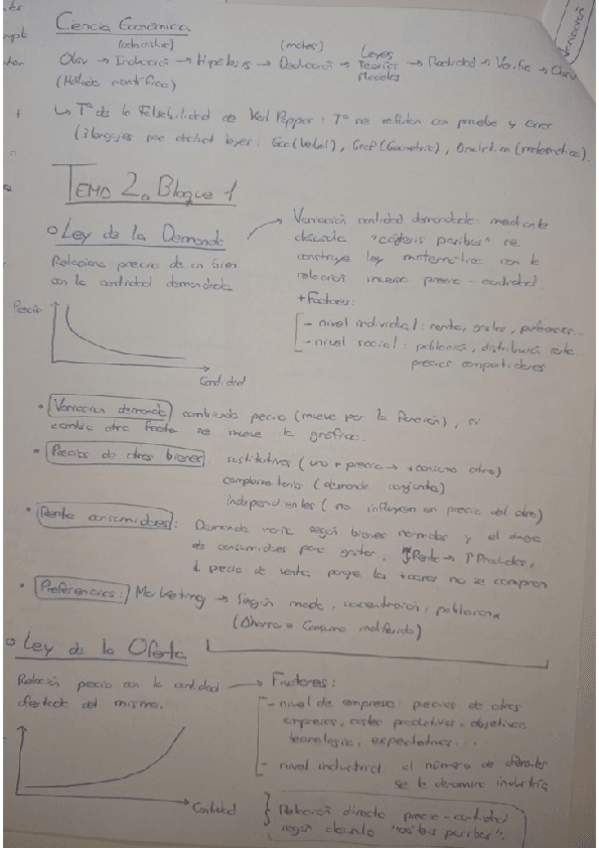 Ciencia Económica
Obsv → Inducción → Hipótesis → Deducción → Leyes Teorías Modelos → Realidad → Verific → Obsv
(Método científico)
↳ Tª de la Falsabilidad de Karl Popper: Tª se refutan con prueba y error
(3 lenguajes para deducir leyes: (verbal), Graf (Geometric), (matemática).
TEMA 2. Bloque 1
o Ley de la Demanda
Relaciona precio de un bien
con la cantidad demandada
Precio
Cantidad
→ Variación cantidad demandada: mediante
cláusula "céteris paribus" se
construye ley matemática con la
relación inversa precio - cantidad
+ Factores:
- nivel individual: renta, gustos,
- nivel social: población, distribución renta
precios
• Variación demanda cambiando precio (mueve por la función), si
cambia otro factor se mueve la gráfica.
• Precios de otros bienes: sustitutivos (uno + precio → + consumo otro)
complementario (demanda conjunta)
independientes (no influyen en precio del otro)
• Renta consumidores: Demanda varía según bienes normales y el
de consumidores para gastar. ↑Renta → ↑
↓ precio de venta porque las + no se compran
• Preferencias: Marketing → Según moda, concentración,
(Ahorro = Consumo indiferido)
o Ley de la Oferta
Relación precio con la cantidad
ofertada del mismo.
Cantidad
→ Factores:
- nivel de empresa: precios de otras
empresas, costes productivos, objetivos,
tecnología, expectativas...
- nivel industrial: el número de oferentes
se le denomina industria
Relación directa precio - cantidad
según cláusula "céteris paribus".